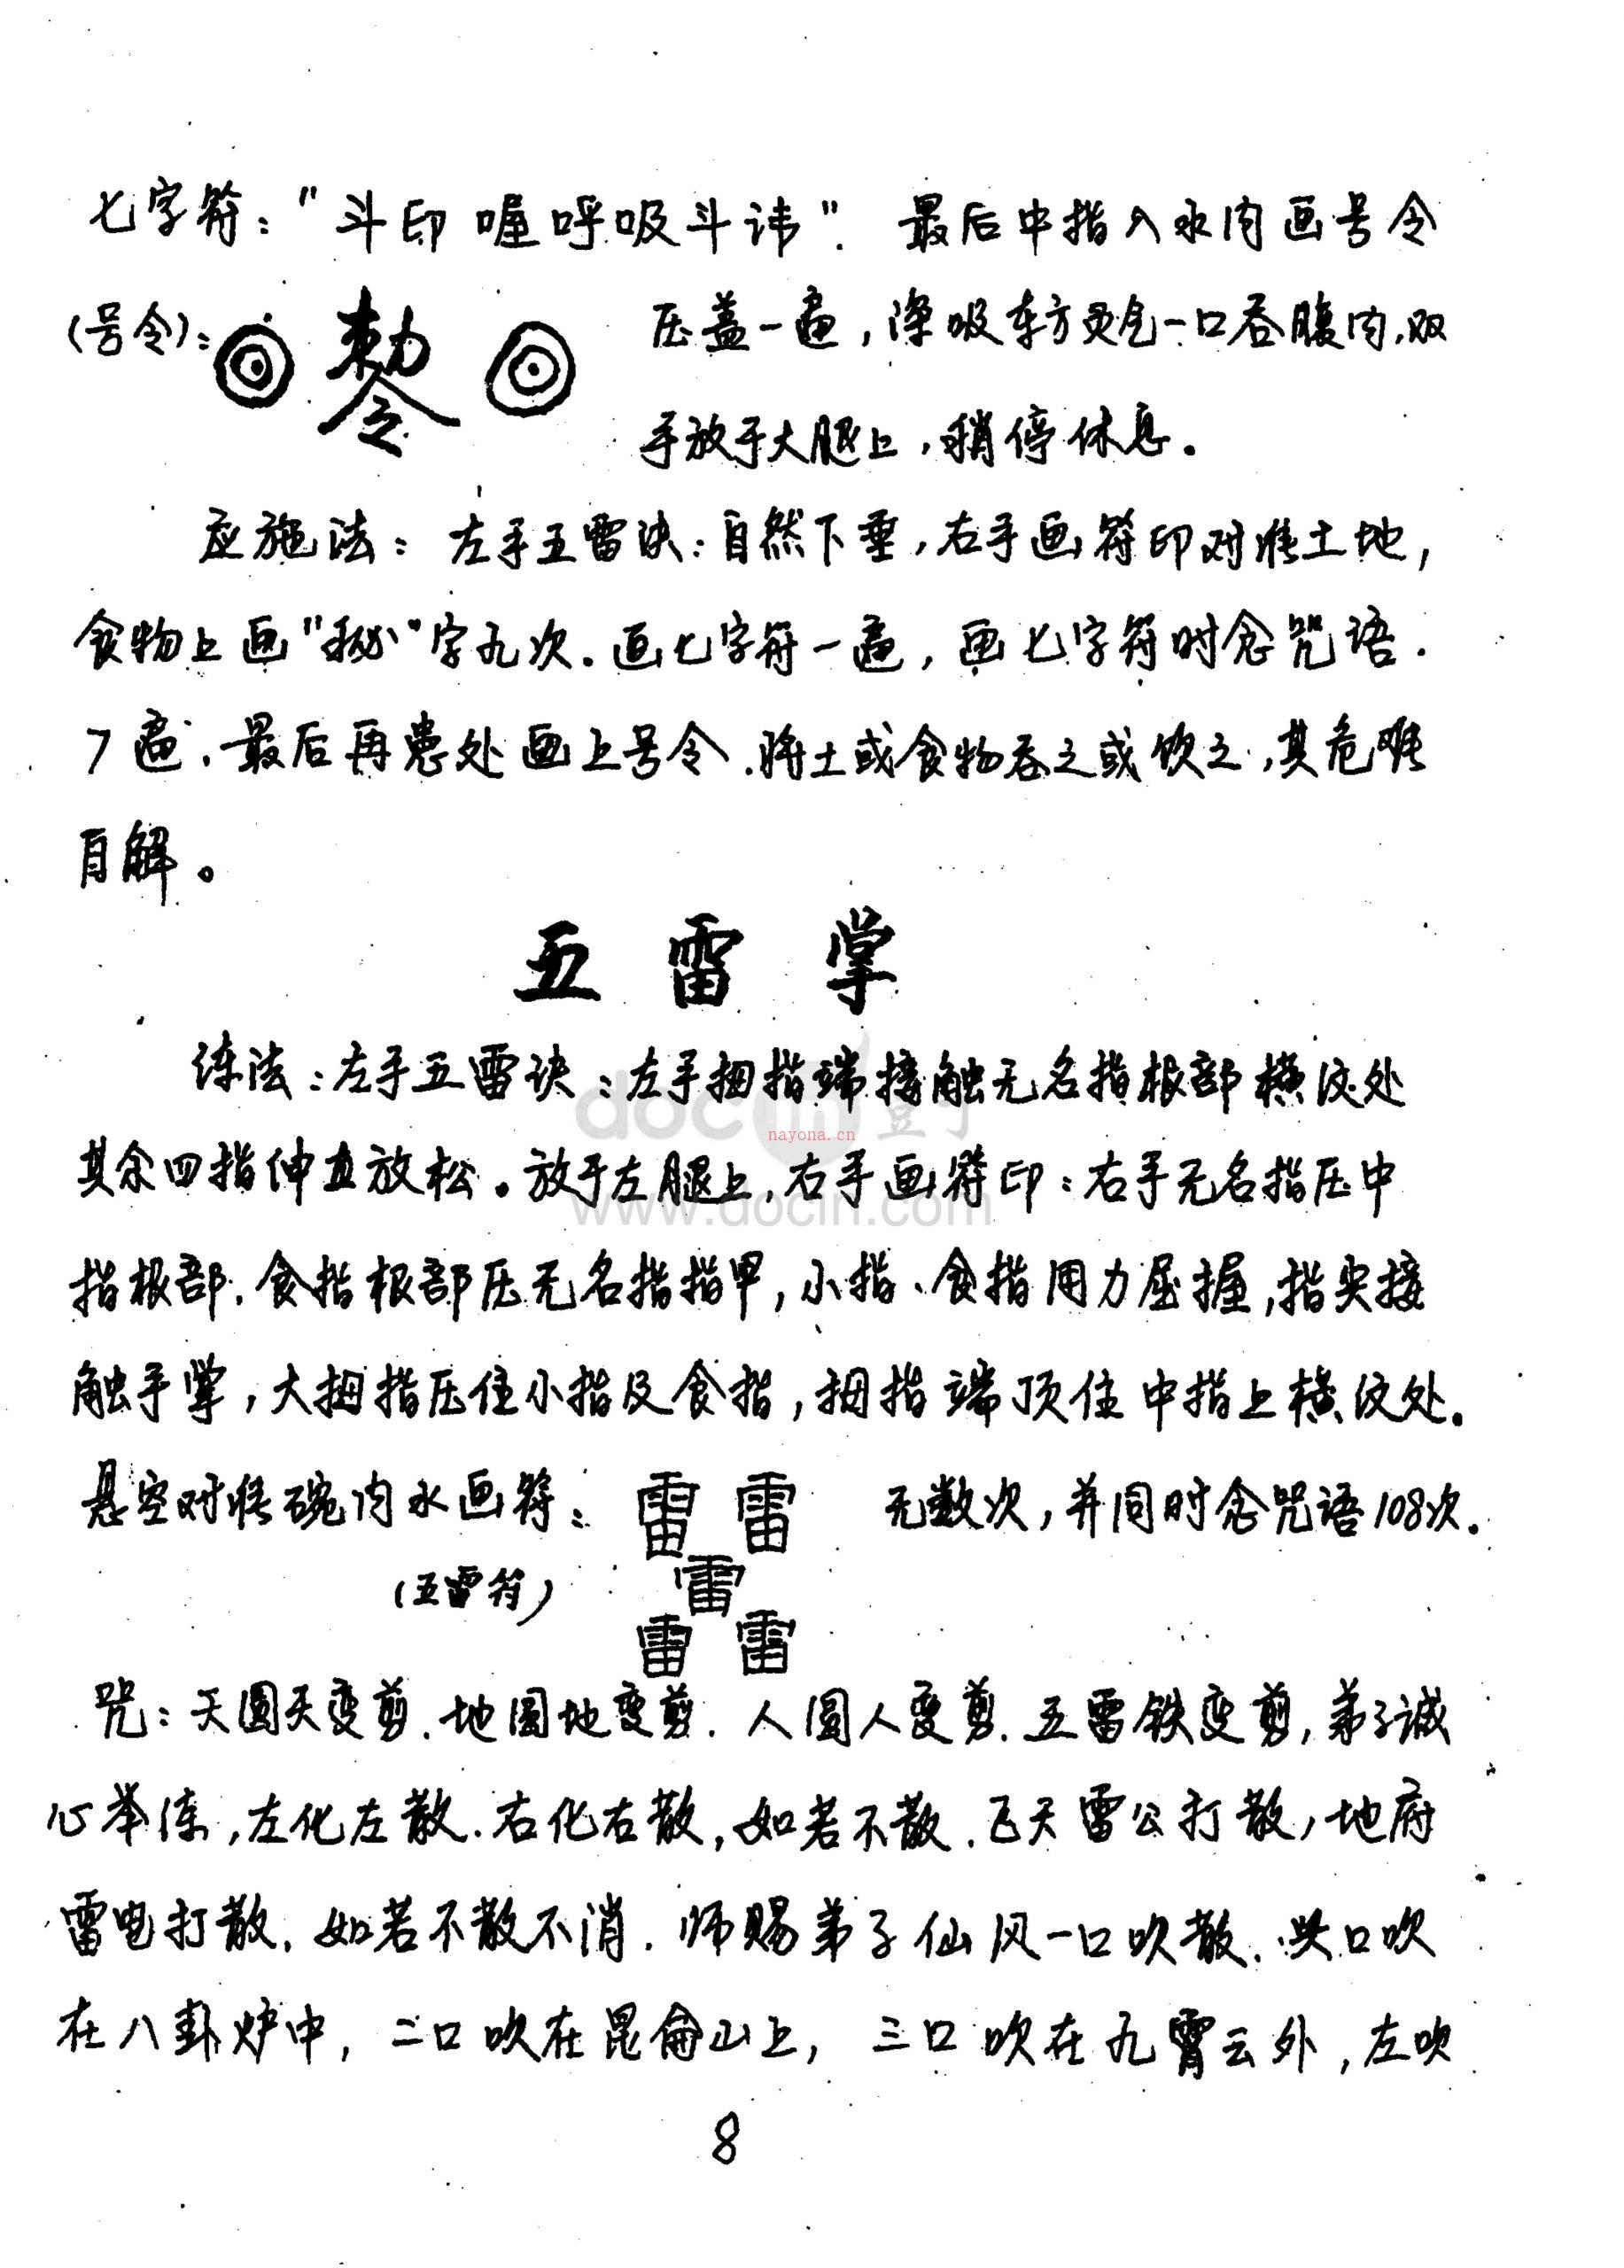 七字符："斗印喔呼吸斗讳". 最后中指入水内画号令
(号令)： 勅令 压盖一遍,深吸东方炁气一口吞腹内,双
手放于大腿上,稍停休息。
应施法：左手五雷诀：自然下垂,右手画符印对准土地,
食物上画"秘"字九次.画七字符一遍,画七字符时念咒语.
7遍.最后再患处画上号令.将土或食物吞之或饮之,其危难
自解。
五雷掌
练法：左手五雷诀：左手拇指端接触无名指根部横纹处
其余四指伸直放松。放于左腿上,右手画符印：右手无名指压中
指根部.食指根部压无名指指甲,小指、食指用力屈握,指尖接
触手掌,大拇指压住小指及食指,拇指端顶住中指上横纹处.
悬空对准碗内水画符： 雷 雷 无数次,并同时念咒语108次.
雷
(五雷符)
雷 雷
咒：天圆天变剪.地圆地变剪.人圆人变剪.五雷铁变剪,弟子诚
心举练,左化左散.右化右散,如若不散.飞天雷公打散,地府
雷电打散.如若不散不消.师赐弟子仙风一口吹散.头口吹
在八卦炉中,二口吹在昆仑山上,三口吹在九霄云外,左吹
8
docin 豆丁
nayona.cn
www.docin.com